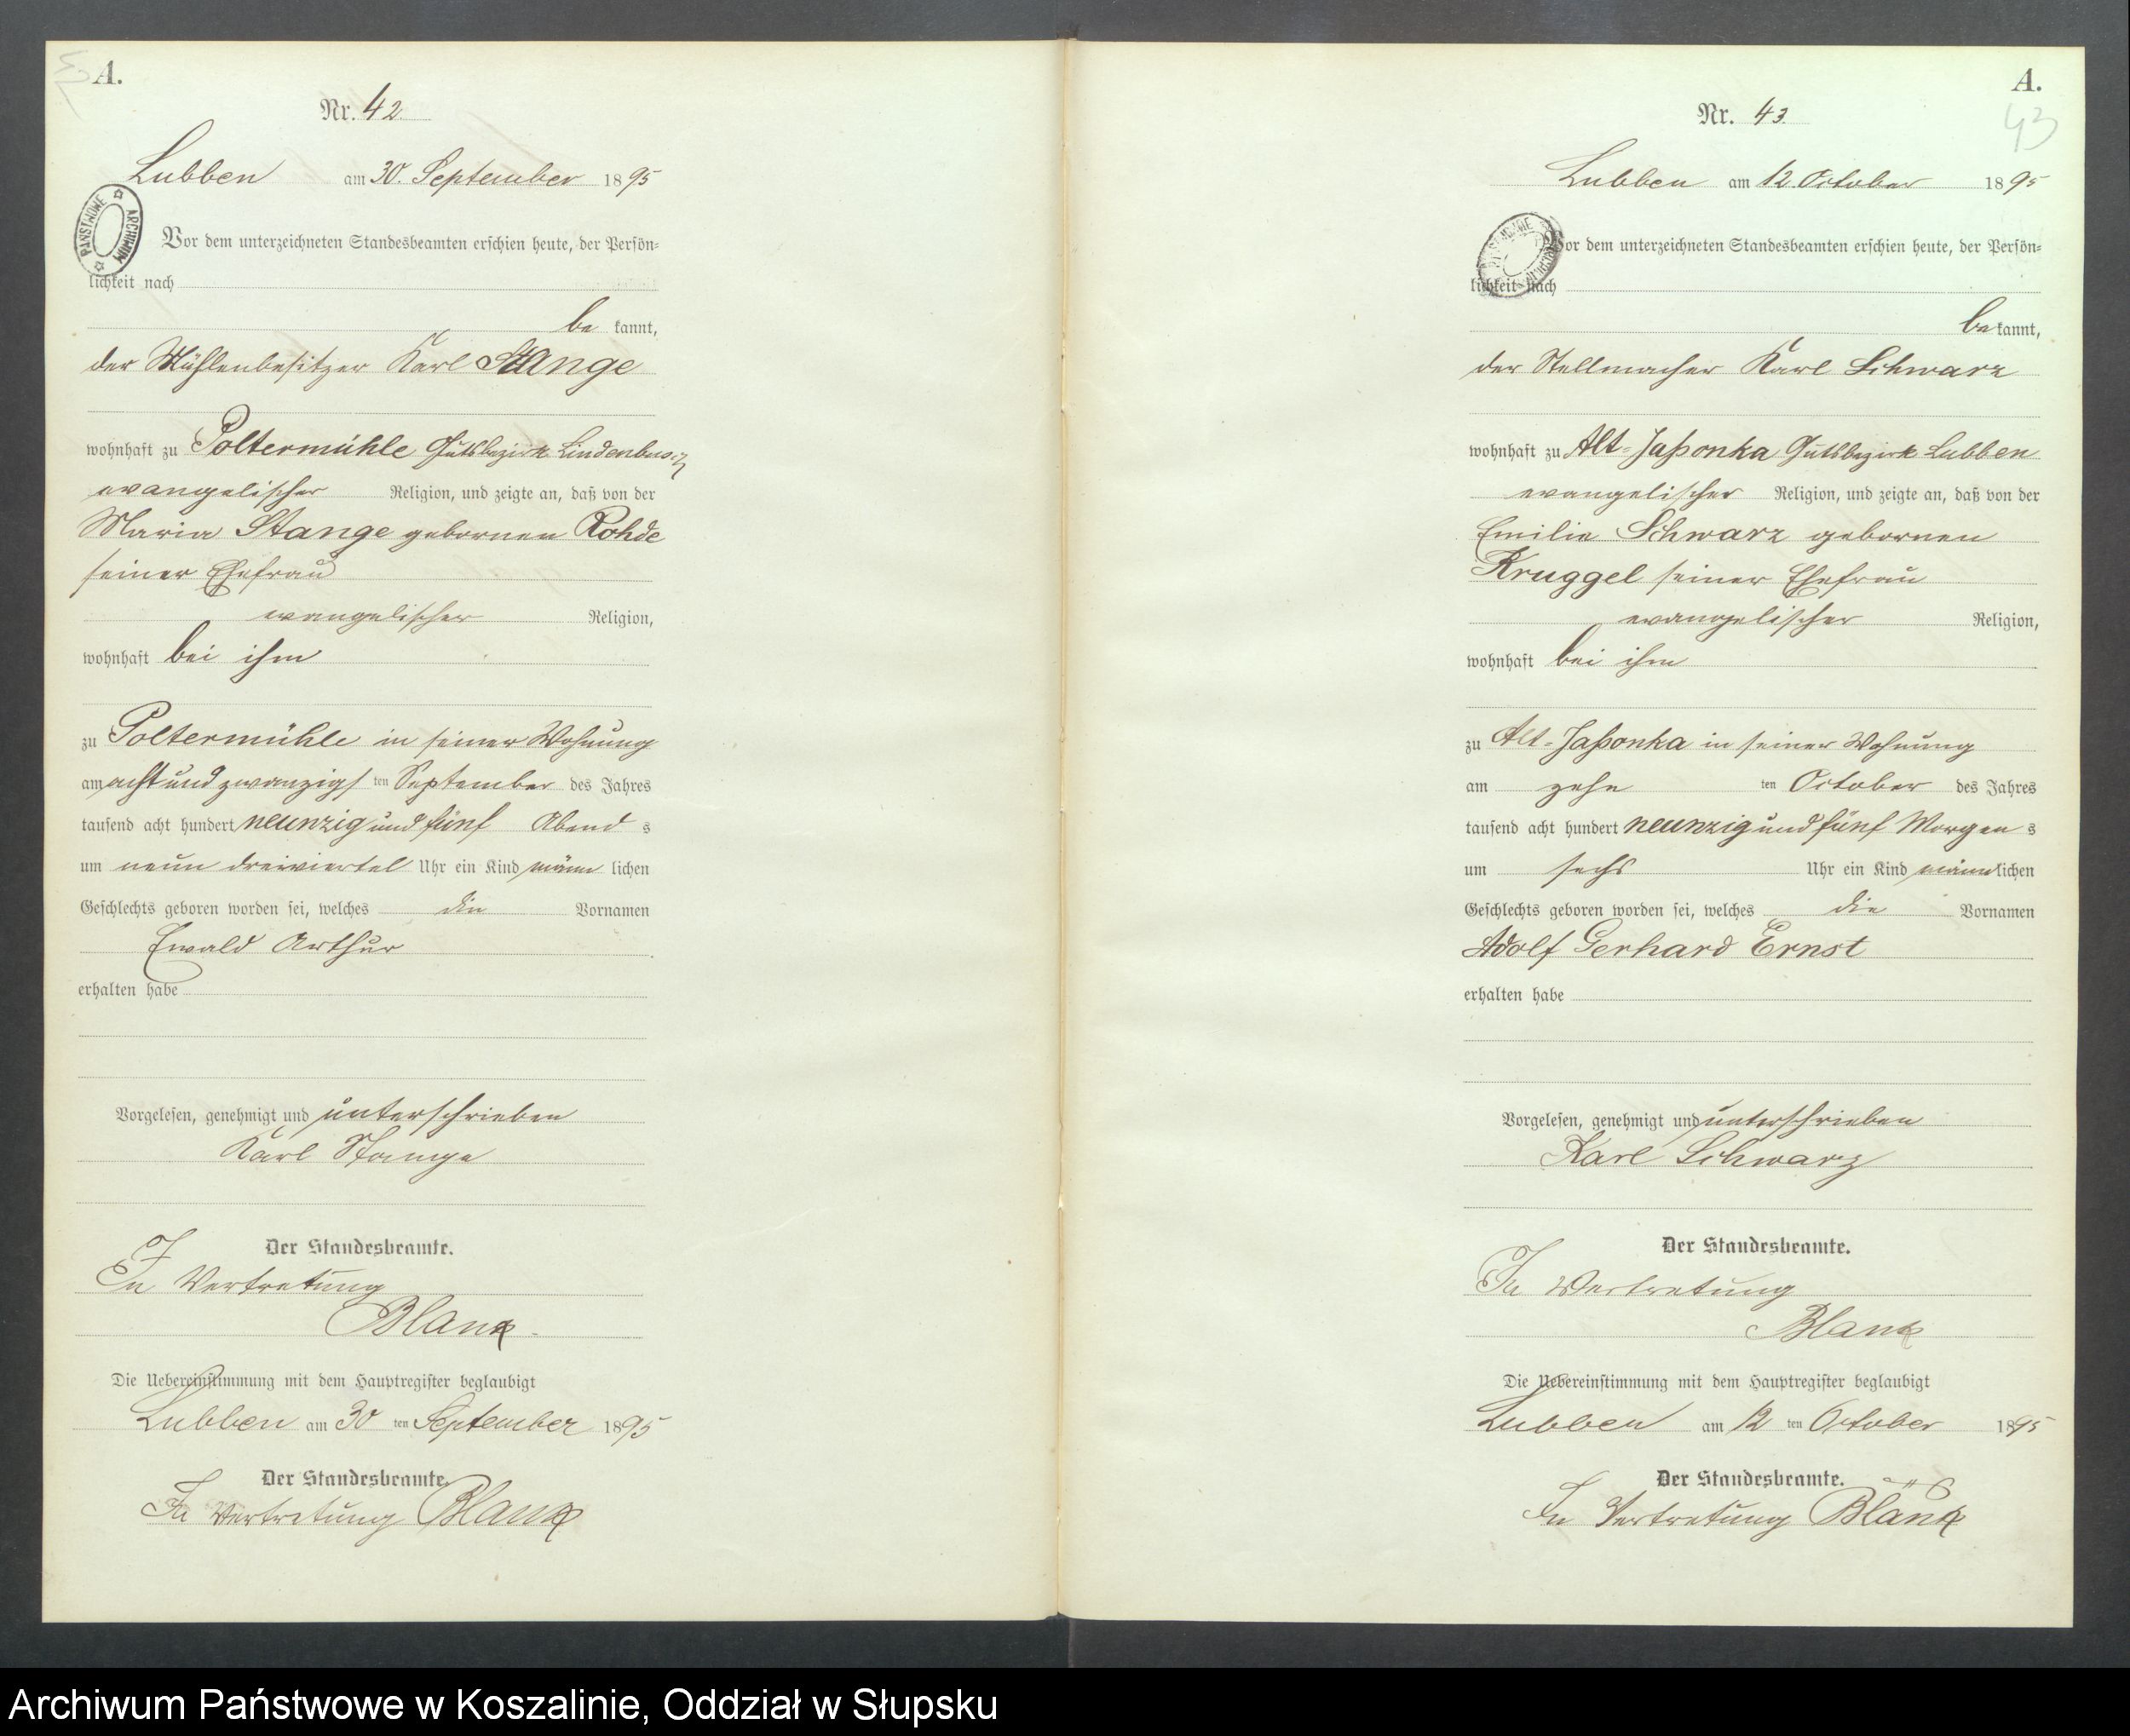 A.
Nr. 42.
Lubben am 30. September 1895
PAŃSTWOWE ARCHIWUM
Vor dem unterzeichneten Standesbeamten erschien heute, der Persön=
lichkeit nach
be kannt,
der Mühlenbesitzer Karl Stange
wohnhaft zu Poltermühle Gutsbezirk Lindenbusch
evangelischer Religion, und zeigte an, daß von der
Maria Stange gebornen Rohde
seiner Ehefrau
evangelischer Religion,
wohnhaft bei ihm
zu Poltermühle in seiner Wohnung
am acht und zwanzigs ten September des Jahres
tausend acht hundert neunzig und fünf Abend s
um neun dreiviertel Uhr ein Kind männ lichen
Geschlechts geboren worden sei, welches die Vornamen
Ewald Arthur
erhalten habe
Vorgelesen, genehmigt und unterschrieben
Karl Stange
Der Standesbeamte.
In Vertretung
Blank
Die Uebereinstimmung mit dem Hauptregister beglaubigt
Lubben am 30 ten September 1895
Der Standesbeamte.
In Vertretung Blank
A.
43
Nr. 43.
Lubben am 12 October 1895
Vor dem unterzeichneten Standesbeamten erschien heute, der Persön=
lichkeit nach
be kannt,
der Stellmacher Karl Schwarz
wohnhaft zu Alt-Jaßonka Gutsbezirk Lubben
evangelischer Religion, und zeigte an, daß von der
Emilie Schwarz gebornen
Kruggel seiner Ehefrau
evangelischer Religion,
wohnhaft bei ihm
zu Alt-Jaßonka in seiner Wohnung
am zehn ten October des Jahres
tausend acht hundert neunzig und fünf Morgen s
um sechs Uhr ein Kind männlichen
Geschlechts geboren worden sei, welches die Vornamen
Adolf Gerhard Ernst
erhalten habe
Vorgelesen, genehmigt und unterschrieben
Karl Schwarz
Der Standesbeamte.
In Vertretung
Blank
Die Uebereinstimmung mit dem Hauptregister beglaubigt
Lubben am 12 ten October 1895
Der Standesbeamte.
In Vertretung Blank
Archiwum Państwowe w Koszalinie, Oddział w Słupsku